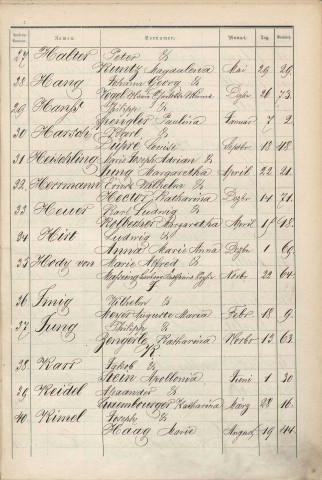 Namen. Vornamen. Monat. Tag.
27 Halter Peter &
Kuntz Magdalena Mai 29 29.
28 Hang Johann Georg &
Vogel Dezbr 26 73.
29 Philipp &
Spengler Paulina Januar 7 2.
30 Karl &
Dupré Louise Septbr 18 48
31 Marie Joseph Adrian &
Jung Margaretha April 22 21.
32 Herrmann Ernst Wilhelm &
Hector Katharina Dezbr 14 71.
33 Heuser Karl Ludwig &
Margaretha April 18.
34 Hirt Ludwig &
Anna Maria Anna Dezbr 1 69
35 Hody von Marie Alfred &
Novbr 22 64.
J
36 Imig Wilhelm &
Meyer Auguste Maria Febr 18 9.
37 Jung Philipp &
Zengerle Katharina Novbr 13 63.
K.
38 Karr Jakob &
Stein Apollonia Juni 1 30
39 Keidel Alexander &
Luxembourger Katharina März 28 16.
40 Kimel Joseph &
Haag Marie August 19 44.